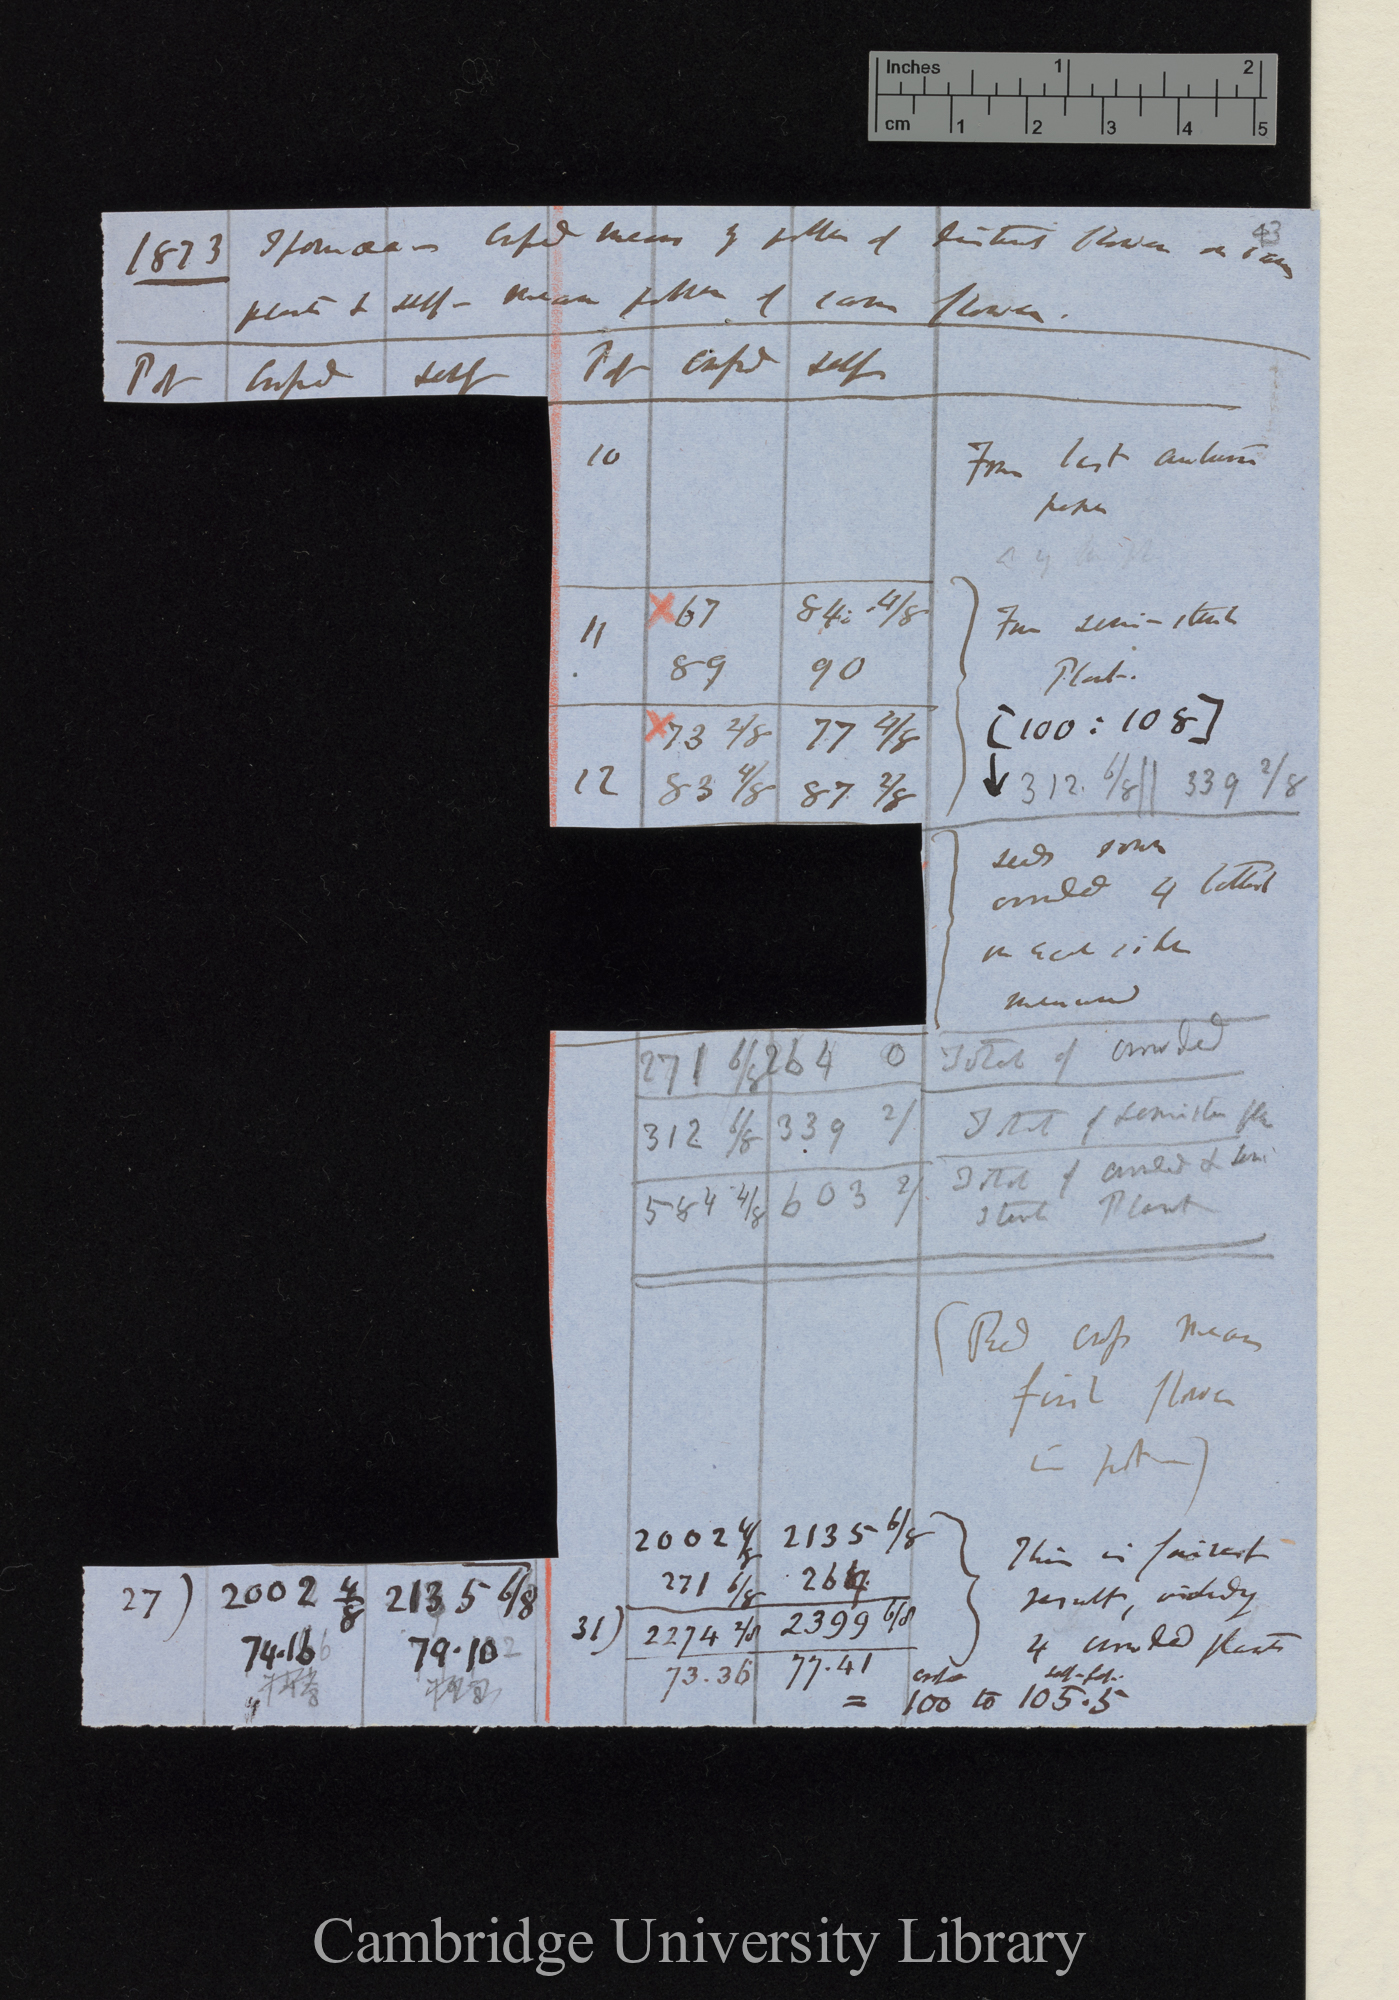 Inches 1 2
cm 1 2 3 4 5
43
1873 Ipomœa — Crossed means by pollen of distinct flower on same
plant & self — mean pollen of same flower.
Pot Crossed Self Pot Crossed Self
10 From last autumn
paper
11 X 67 84. 4/8 From semi-sterile
89 90 Plant.
12 X 73 2/8 77 4/8 [100 : 108]
83 4/8 87 2/8 ↓ 312. 6/8 || 339 2/8
seeds sown
crowded 4 tallest
on each side
measured
271 6/8 264 0 Total of crowded
312 6/8 339 2/ Total of semister
584 4/8 603 2/ Total of crowded & semi
sterile Plant
(Red cross means
first flower
in pot)
2002 4/8 2135 6/8 This is fairest
271 6/8 264 result, include
31) 2274 2/8 2399 6/8 4 crowded plants
73.36 77.41
crossed self-fert.
= 100 to 105.5
27) 2002 4/8 2135 6/8
74.16 79.10
Cambridge University Library